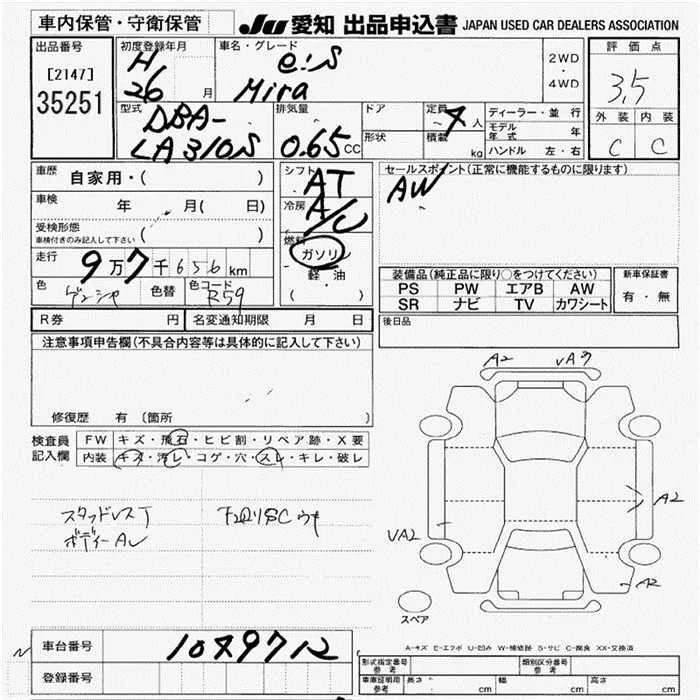 車内保管・守衛保管
JU 愛知 出品申込書 JAPAN USED CAR DEALERS ASSOCIATION
出品番号
[2147]
35251
初度登録年月
H
26 月
車名・グレード
e:S
Mira
2WD
・
4WD
評価点
3.5
外装 内装
C C
型式
DBA-
LA310S
排気量
0.65 CC
ドア
形状
定員 4 人
積載 kg
ディーラー・並行
モデル年式 年
ハンドル 左・右
車歴 自家用・( )
車検 年 月( 日)
受検形態
車検付きのみ記入して下さい ( )
走行 9万7千656km
色 色替 色コード R59
シフト AT
冷房 A/C
燃料 ガソリン
軽・油
( )
セールスポイント(正常に機能するものに限ります)
AW
装備品(純正品に限り○をつけてください)
PS PW エアB AW
SR ナビ TV カワシート
新車保証書
有・無
R券 円 名変通知期限 月 日
後日品
注意事項申告欄(不具合内容等は具体的に記入して下さい)
修復歴 有 〔箇所 〕
検査員記入欄
FW キズ・飛石・ヒビ割・リペア跡・X要
内装 キズ・汚レ・コゲ・穴・スレ・キレ・破レ
スタッドレスT
ボディーAU
A2 VA3
A2
VA2
A2
スペア
A-キズ E-エクボ U-凹み W-補修跡 S-サビ C-腐食 XX-交換済
N
車台番号 1049712
登録番号
形式指定番号 参考
類別区分番号 参考
車庫証明用 参考 長さ cm 幅 cm 高さ cm